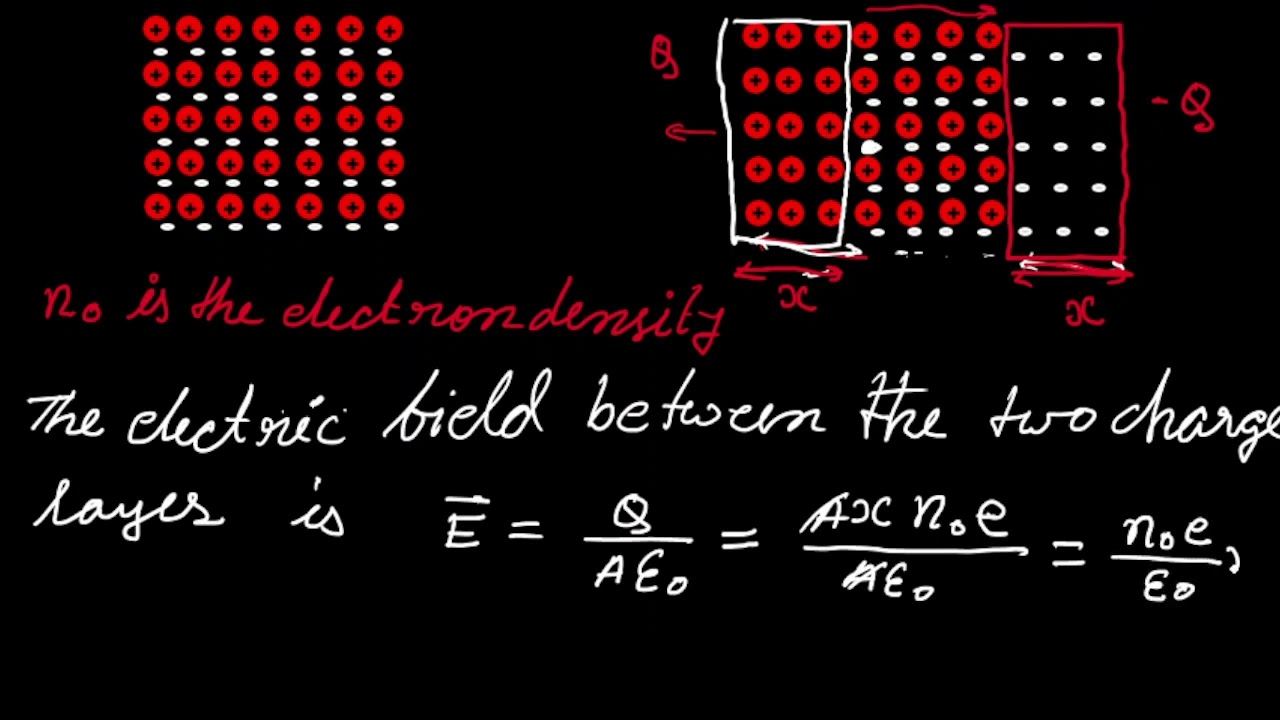 Q
- Q
x
x
n₀ is the electron density
The electric field between the two charge
layes is E⃗ = Q/Aε₀ = Axn₀e/Aε₀ = n₀e/ε₀